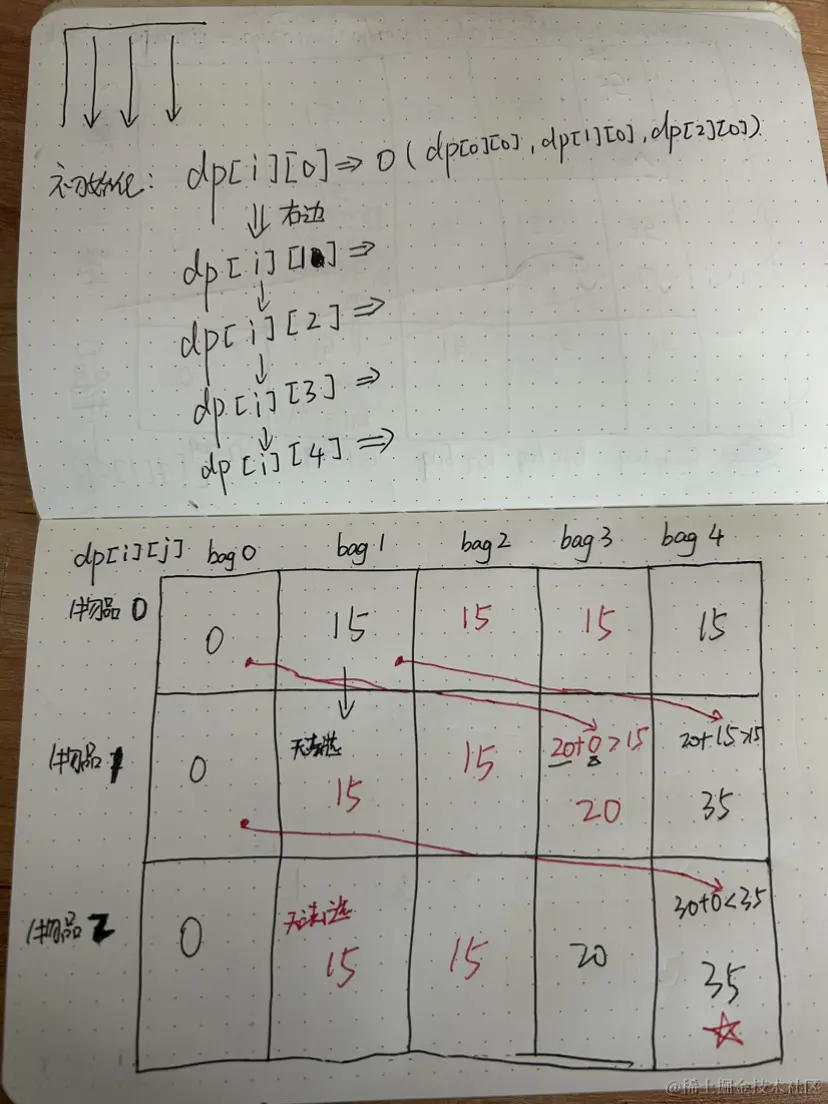 初始化: dp[i][0]⇒ 0 ( dp[0][0], dp[1][0], dp[2][0])
⇓ 右边
dp[i][1]⇒
↓
dp[i][2]⇒
↓
dp[i][3]⇒
↓
dp[i][4]⇒
dp[i][j] bag 0 bag 1 bag 2 bag 3 bag 4
物品 0 0 15 15 15 15
物品 1 0 无法选 15 15 20+0>15 20 20+15>15 35
物品 2 0 无法选 15 15 20 30+0<35 35
@稀土掘金技术社区